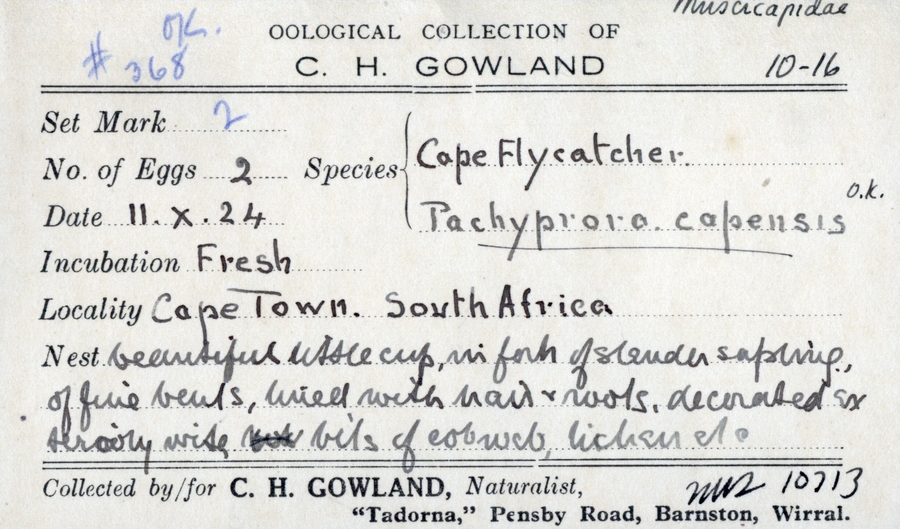 Muscicapidae
O.K.
# 368
OOLOGICAL COLLECTION OF
C. H. GOWLAND
10-16
Set Mark 2
No. of Eggs 2
Species Cape Flycatcher.
Date 11. X. 24
Pachyprora. capensis
o.k.
Incubation Fresh
Locality Cape Town. South Africa
Nest beautiful little cup, in fork of slender sapling.,
of fine bents, lined with hair & roots. decorated ex
teriorly with bits of cobweb, lichen etc
Collected by/for C. H. GOWLAND, Naturalist,
10713
"Tadorna," Pensby Road, Barnston, Wirral.